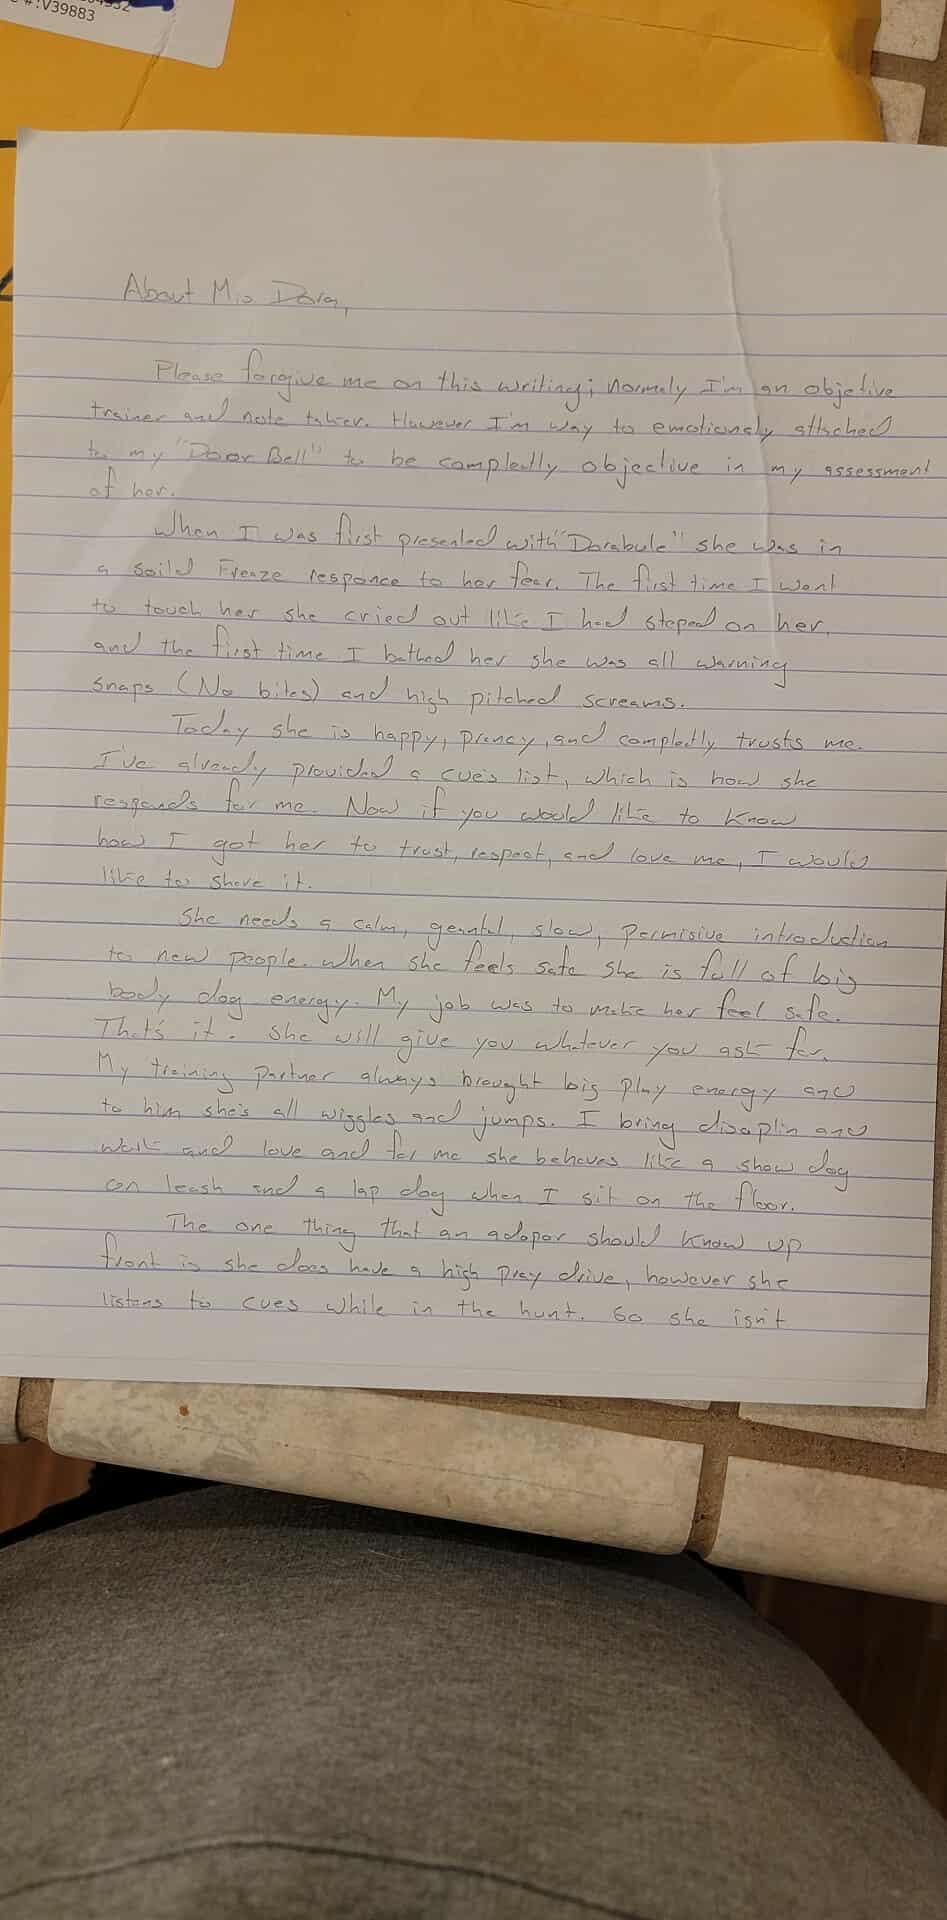 #:V39883
About Mis Dora,
Please forgive me on this writing; normaly I'm an objetive
trainer and note taker. However I'm way to emotionaly attached
to my "Door Bell" to be completly objective in my assessment
of her.
When I was first presented with "Dorabule" she was in
a soild Freeze responce to her fear. The first time I want
to touch her she cried out like I had steped on her,
and the first time I bathed her she was all warning
snaps (No bites) and high pitched screams.
Today she is happy, prancy, and completly trusts me.
I've already provided a cue's list, which is how she
responds for me. Now if you would like to know
how I got her to trust, respect, and love me, I would
like to share it.
She needs a calm, geantel, slow, permisive introduction
to new people. when she feels safe she is full of big
body dog energy. My job was to make her feel safe.
That's it. She will give you whatever you ask for.
My training partner always brought big play energy and
to him she's all wiggles and jumps. I bring disaplin and
work and love and for me she behaves like a show dog
on leash and a lap dog when I sit on the floor.
The one thing that an adopor should know up
front is she does have a high prey drive, however she
listens to cues while in the hunt. So she isn't